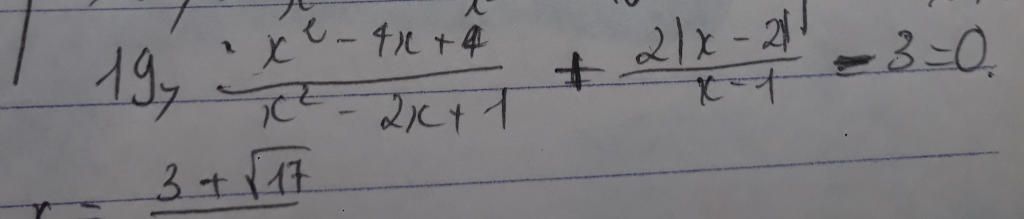 19, \frac{x^2 - 4x + 4}{x^2 - 2x + 1} + \frac{2|x - 2|}{x - 1} - 3 = 0.
x = \frac{3 + \sqrt{17}}{}